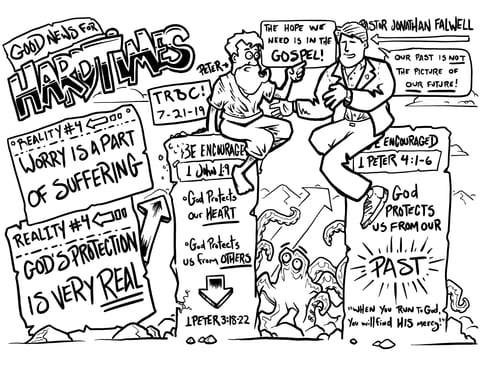 GOOD NEWS FOR
HARD TIMES
PETER→
THE HOPE WE
NEED IS IN THE
GOSPEL!
PASTOR JONATHAN FALWELL
OUR PAST IS NOT
THE PICTURE OF
OUR FUTURE!
TRBC!
7-21-19
REALITY #4
WORRY IS A PART
OF SUFFERING
REALITY #4
GOD'S PROTECTION
IS VERY REAL
BE ENCOURAGED
1 John 1:9
God Protects
our HEART
God Protects
us from OTHERS
1 PETER 3:18-22
BE ENCOURAGED
1 PETER 4:1-6
God
PROTECTS
US FROM OUR
PAST
"WHEN YOU RUN TO GOD,
You will find HIS mercy!"